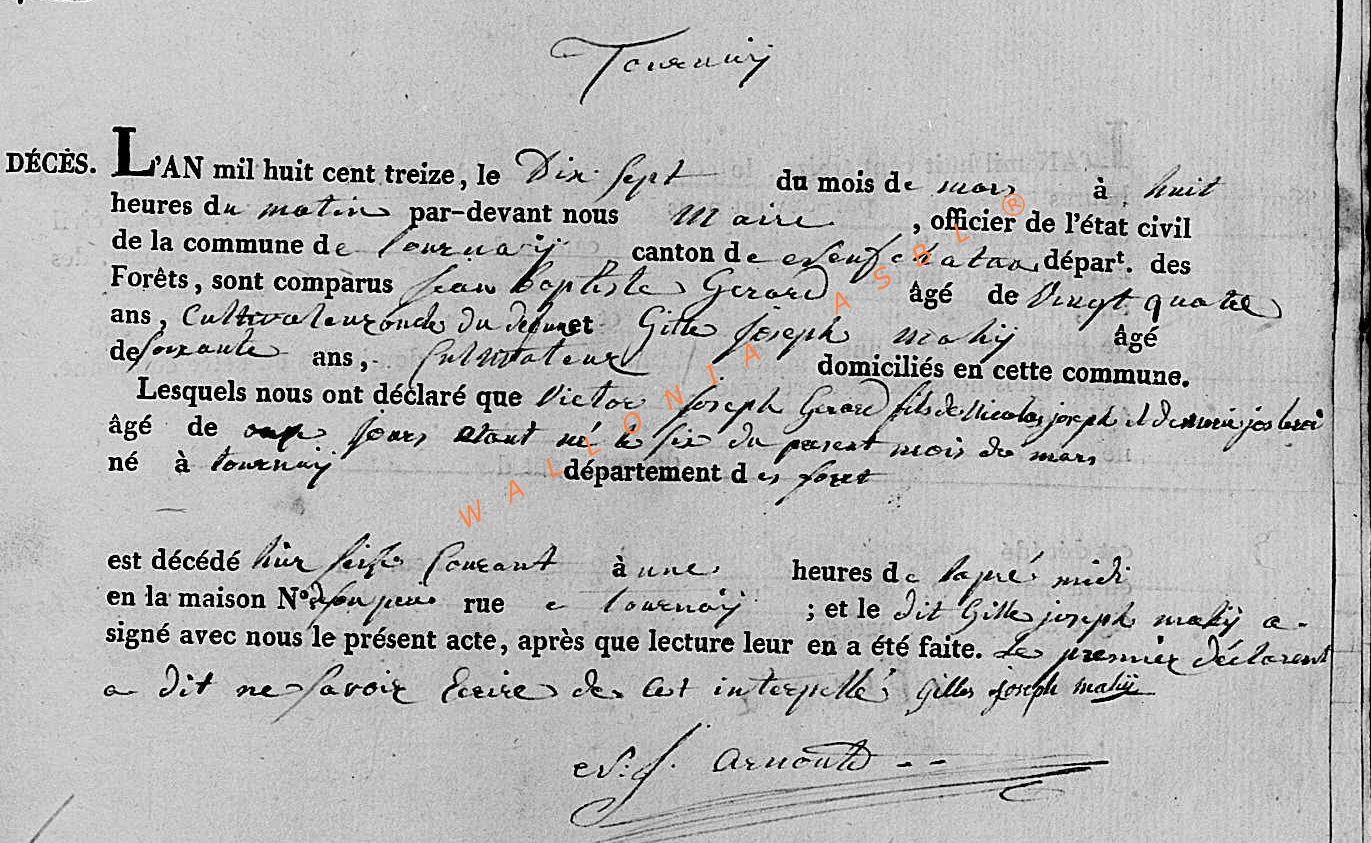 Tournaÿ
DÉCÈS. L'AN mil huit cent treize, le Dix Sept du mois de mars à huit
heures du matin par-devant nous Maire, officier de l'état civil
de la commune de tournaÿ canton de Neufchatau, départ. des
Forêts, sont comparus Jean Baptiste Gerard âgé de Vingt quatre
ans, Cultivateur oncle du defunct Gille Joseph mahÿ âgé
de soixante ans, Cultivateur domiciliés en cette commune.
Lesquels nous ont déclaré que Victor Joseph Gerard fils de Nicolas joseph et de marie jos
âgé de onze jours étant né le six du present mois de mars
né à tournaÿ département des foret
est décédé hier seize Courant à une heures de lapré midi
en la maison No de son pere rue a tournaÿ; et le dit Gille joseph mahÿ a
signé avec nous le présent acte, après que lecture leur en a été faite. Le premier déclarent
a dit ne savoir Ecrire de Cet interpellé Gilles joseph mahÿ
N: J. Arnould
WALLONIA ASBL ®